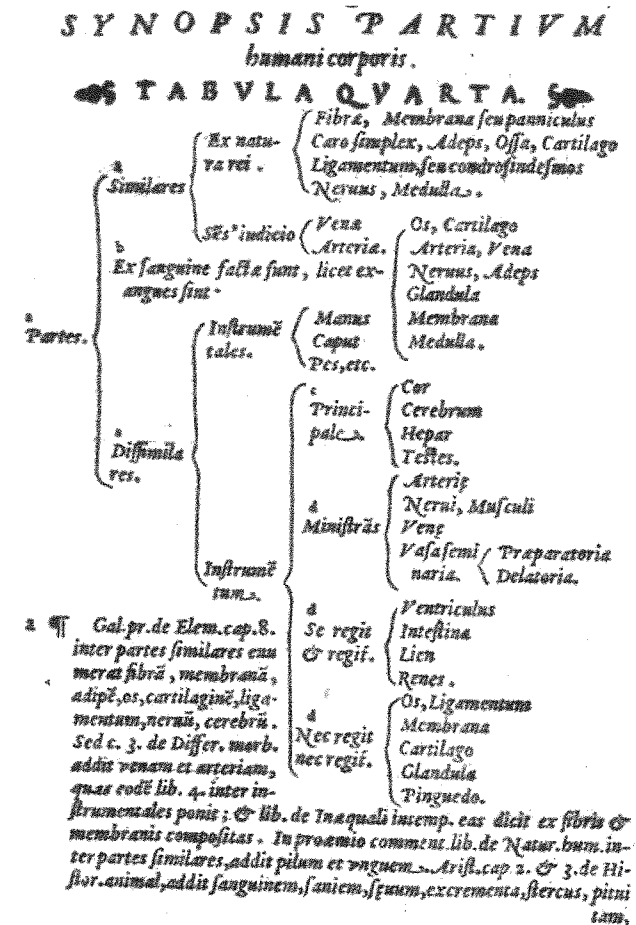 SYNOPSIS PARTIVM
humani corporis.
TABVLA QVARTA.
Fibræ, Membrana ſeu panniculus
Ex natu- Caro ſimplex, Adeps, Oſſa, Cartilago
ra rei. Ligamentum, ſeu condroſindeſmos
a
Similares Neruus, Medulla.
Sēs⁹ iudicio Vena
Arteria.
Os, Cartilago
Arteria, Vena
Neruus, Adeps
Glandula
Membrana
Medulla.
b
Ex ſanguine factæ ſunt, licet ex-
angues ſint.
a
Partes.
Inſtrumē
tales.
Manus
Caput
Pes, etc.
a
Diſſimila
res.
Inſtrumē
tum.
c
Princi-
pale.
Cor
Cerebrum
Hepar
Teſtes.
d
Miniſtrās
Arterię
Nerui, Muſculi
Venę
Vaſa ſemi Præparatoria
naria. Delatoria.
d
Se regit
& regit̄.
Ventriculus
Inteſtina
Lien
Renes.
d
Nec regit
nec regit̄.
Os, Ligamentum
Membrana
Cartilago
Glandula
Pinguedo.
a ¶ Gal. pr. de Elem. cap. 8.
inter partes ſimilares enu
merat fibrā, membranā,
adipē, os, cartilaginē, liga-
mentum, neruū, cerebrū.
Sed c. 3. de Differ. morb.
addit venam et arteriam,
quas eodē lib. 4. inter in-
ſtrumentales ponit; & lib. de Inæquali intemp. eas dicit ex fibris &
membranis compoſitas. In proæmio comment. lib. de Natur. hum. in-
ter partes ſimilares, addit pilum et vnguem. Ariſt. cap 2. & 3. de Hi-
ſtor. animal, addit ſanguinem, ſaniem, ſęuum, excrementa, ſtercus, pitui
tam,